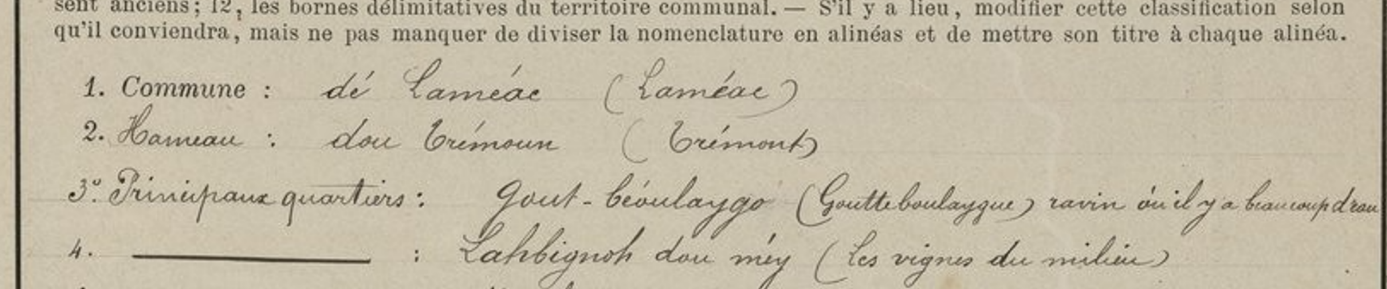 sent anciens; 12, les bornes délimitatives du territoire communal. — S'il y a lieu, modifier cette classification selon
qu'il conviendra, mais ne pas manquer de diviser la nomenclature en alinéas et de mettre son titre à chaque alinéa.
1. Commune : dé Laméac (Laméac)
2. Hameau : dou Trémoun (Trémont)
3.° Principaux quartiers : Gout-béoulaygo (Goutteboulaygue) ravin où il y a beaucoup d'eau
4. ——— : Lahbignoh dou méy (Les vignes du milieu)